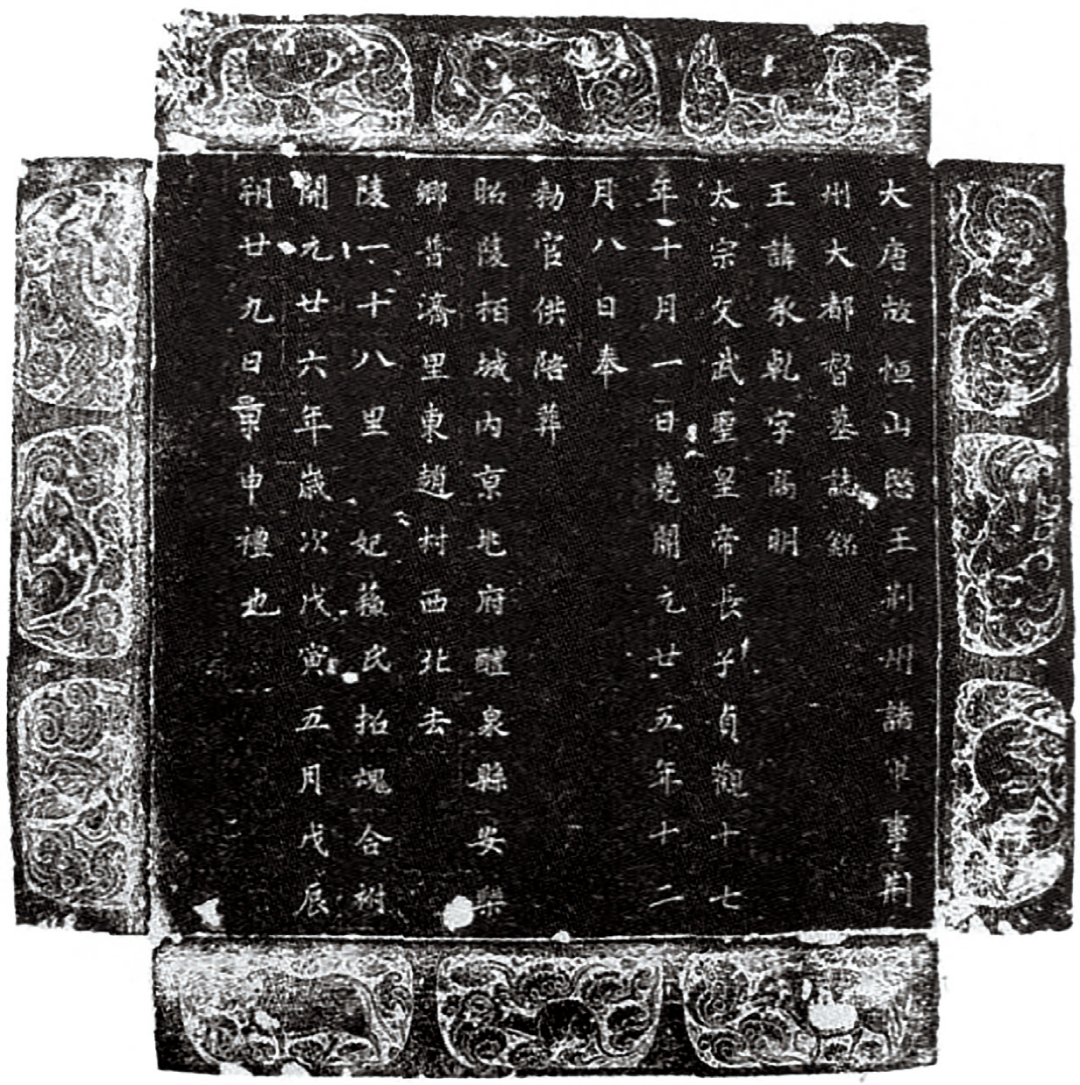 大唐故恒山愍王荊州諸軍事荊
州大都督墓誌銘
王諱承乹字高明
太宗文武聖皇帝長子貞觀十七
年十月一日薨開元廿五年十二
月八日奉
勑官供陪葬
昭陵栢城内京兆府醴泉縣安樂
鄉普濟里東趙村西北去
陵一十八里 妃蘓氏招魂合祔
開元廿六年歲次戊寅五月戊辰
朔廿九日景申禮也